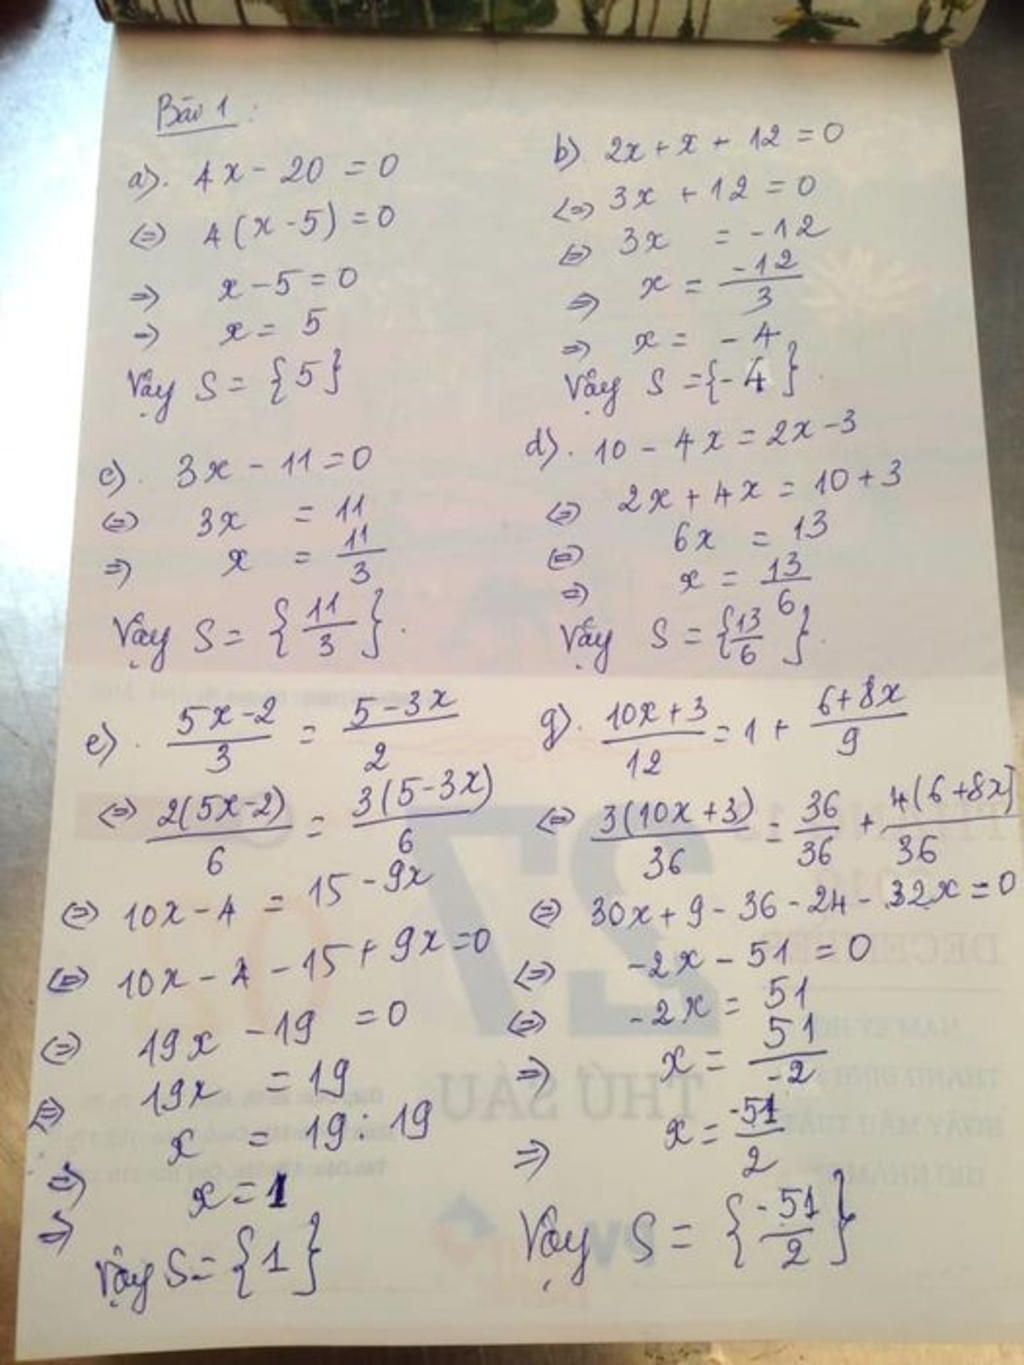 Bài 1:
a). 4x - 20 = 0
⇔ 4(x - 5) = 0
⇒ x - 5 = 0
⇒ x = 5
Vậy S = {5}
b) 2x + x + 12 = 0
⇔ 3x + 12 = 0
⇔ 3x = -12
⇒ x = -12/3
⇒ x = -4
Vậy S = {-4}.
c). 3x - 11 = 0
⇔ 3x = 11
⇒ x = 11/3
Vậy S = {11/3}.
d). 10 - 4x = 2x - 3
⇔ 2x + 4x = 10 + 3
⇔ 6x = 13
⇒ x = 13/6
Vậy S = {13/6}.
e). (5x - 2)/3 = (5 - 3x)/2
⇔ 2(5x - 2)/6 = 3(5 - 3x)/6
⇔ 10x - 4 = 15 - 9x
⇔ 10x - 4 - 15 + 9x = 0
⇔ 19x - 19 = 0
⇔ 19x = 19
⇒ x = 19 : 19
⇒ x = 1
Vậy S = {1}
g). (10x + 3)/12 = 1 + (6 + 8x)/9
⇔ 3(10x + 3)/36 = 36/36 + 4(6 + 8x)/36
⇔ 30x + 9 - 36 - 24 - 32x = 0
⇔ -2x - 51 = 0
⇔ -2x = 51
⇒ x = 51/-2
⇒ x = -51/2
Vậy S = {-51/2}
27
THỨ SÁU